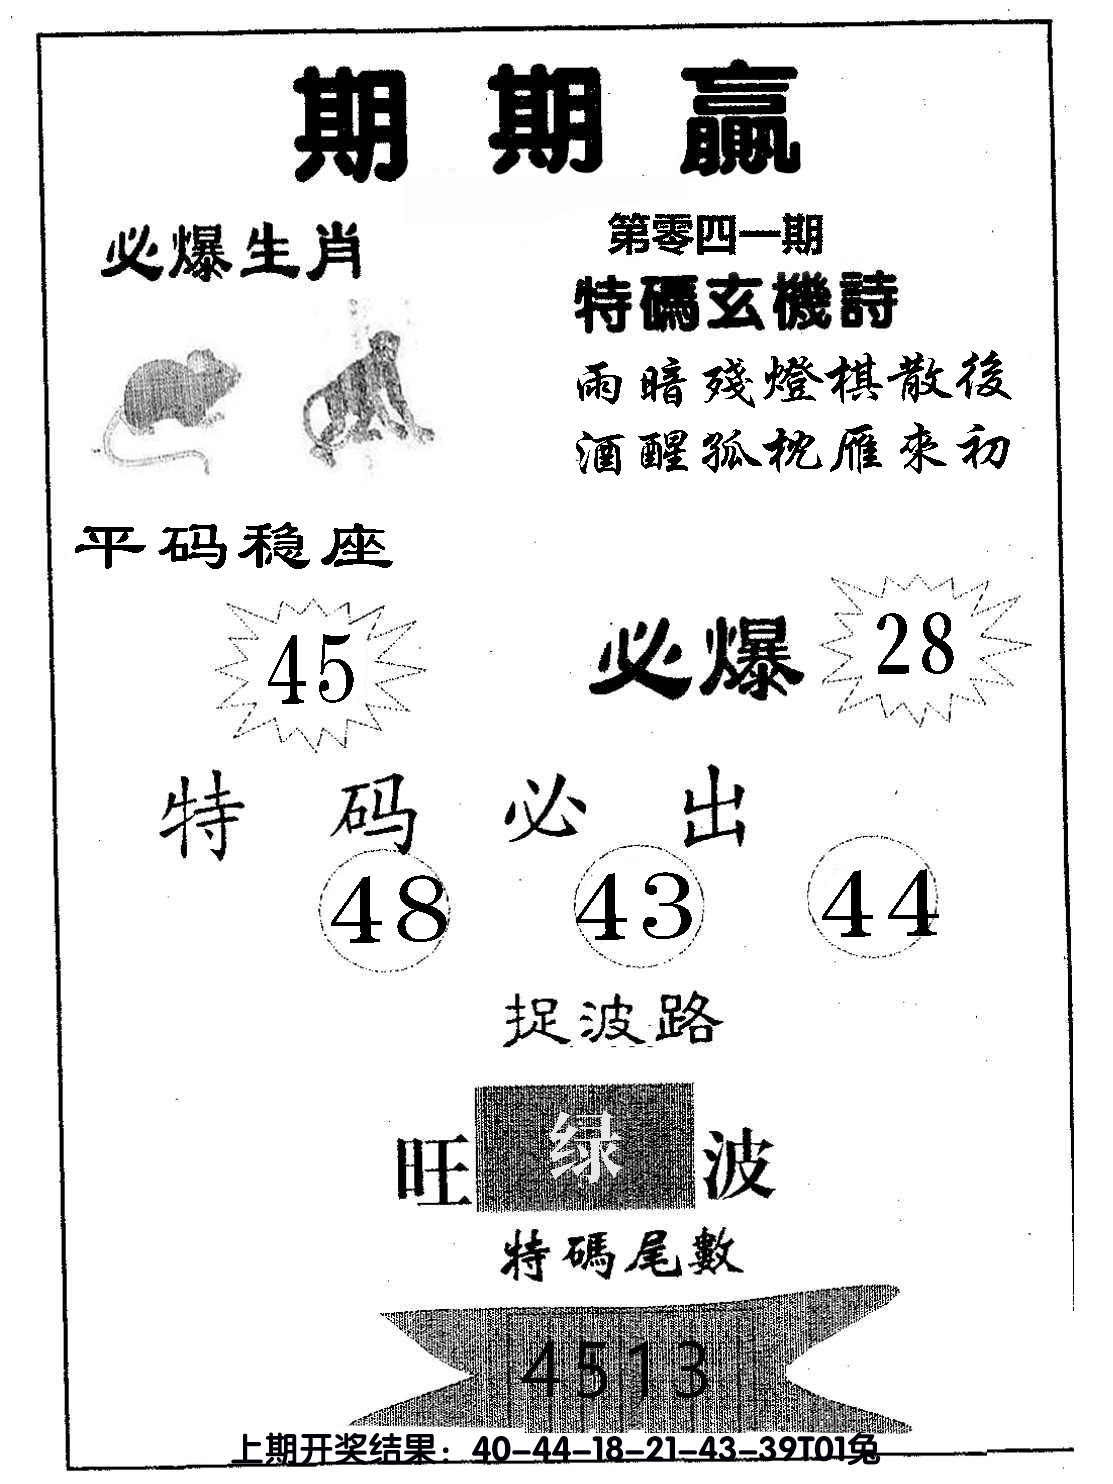 期期贏
必爆生肖
第零四一期
特碼玄機詩
雨暗殘燈棋散後
酒醒孤枕雁來初
平码稳座
45
必爆 28
特码必出
48 43 44
捉波路
旺 绿 波
特碼尾數
4513
上期开奖结果：40-44-18-21-43-39T01兔